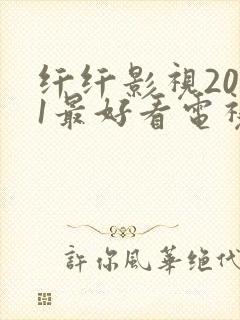 纤纤影視20
1最好看電視
許你風華绝代